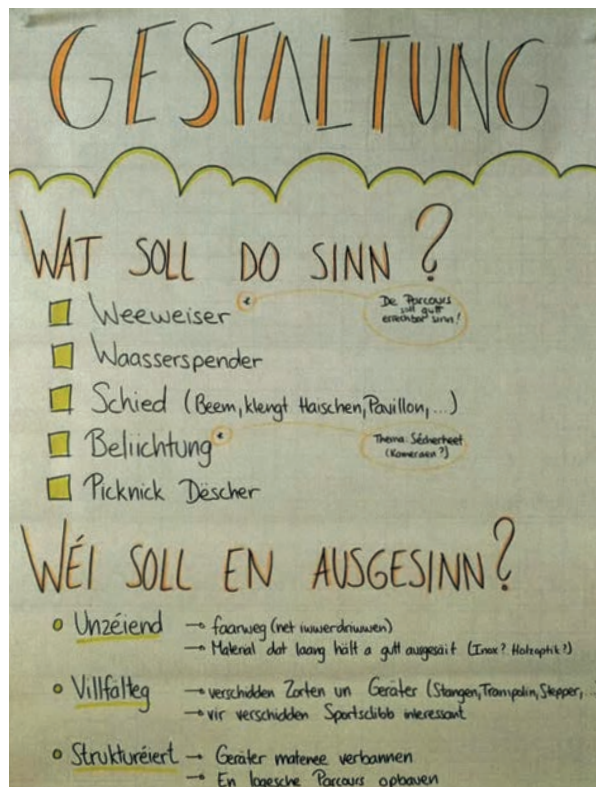 GESTALTUNG
WAT SOLL DO SINN?
Weeweiser *
De Parcours
soll gutt
erreechbar sinn!
Waasserspender
Schied (Beem, klengt Haischen, Pavillon, ...)
Beliichtung *
Thema: Sécherheet
(Kameraen?)
Picknick Dëscher
WÉI SOLL EN AUSGESINN?
Unzéiend → faarweg (net iwwerdriwwen)
→ Material dat laang hält a gutt ausgesäit (Inox? Holzoptik?)
Villfälteg → verschidden Zorten un Geräter (Stangen, Trampolin, Stepper, ...
→ vir verschidden Sportsclibb interessant
Strukturéiert → Geräter matenee verbannen
→ En logesche Parcours opbauen